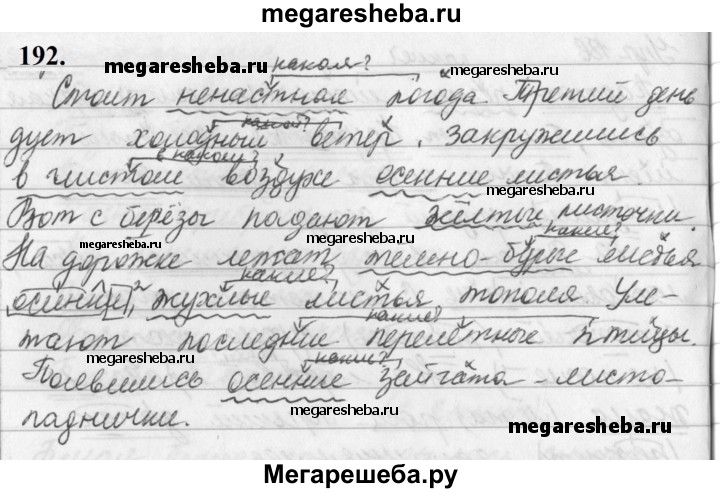 megaresheba.ru
192.
какая?
Стоит ненастная погода. Третий день
какой?
дует холодный ветер. Закружились
в каком?
в чистом воздухе осенние листья.
Вот с берёзы падают жёлтые листочки.
какие?
На дорожке лежат темно-бурые листья
какие?
осинки, жухлые листья тополя. Уле-
какие?
тают последние перелётные птицы.
какие?
Появились осенние зайчата-листо-
паднички.
megaresheba.ru
megaresheba.ru
megaresheba.ru
megaresheba.ru
megaresheba.ru
megaresheba.ru
megaresheba.ru
megaresheba.ru
megaresheba.ru
Мегарешеба.ру